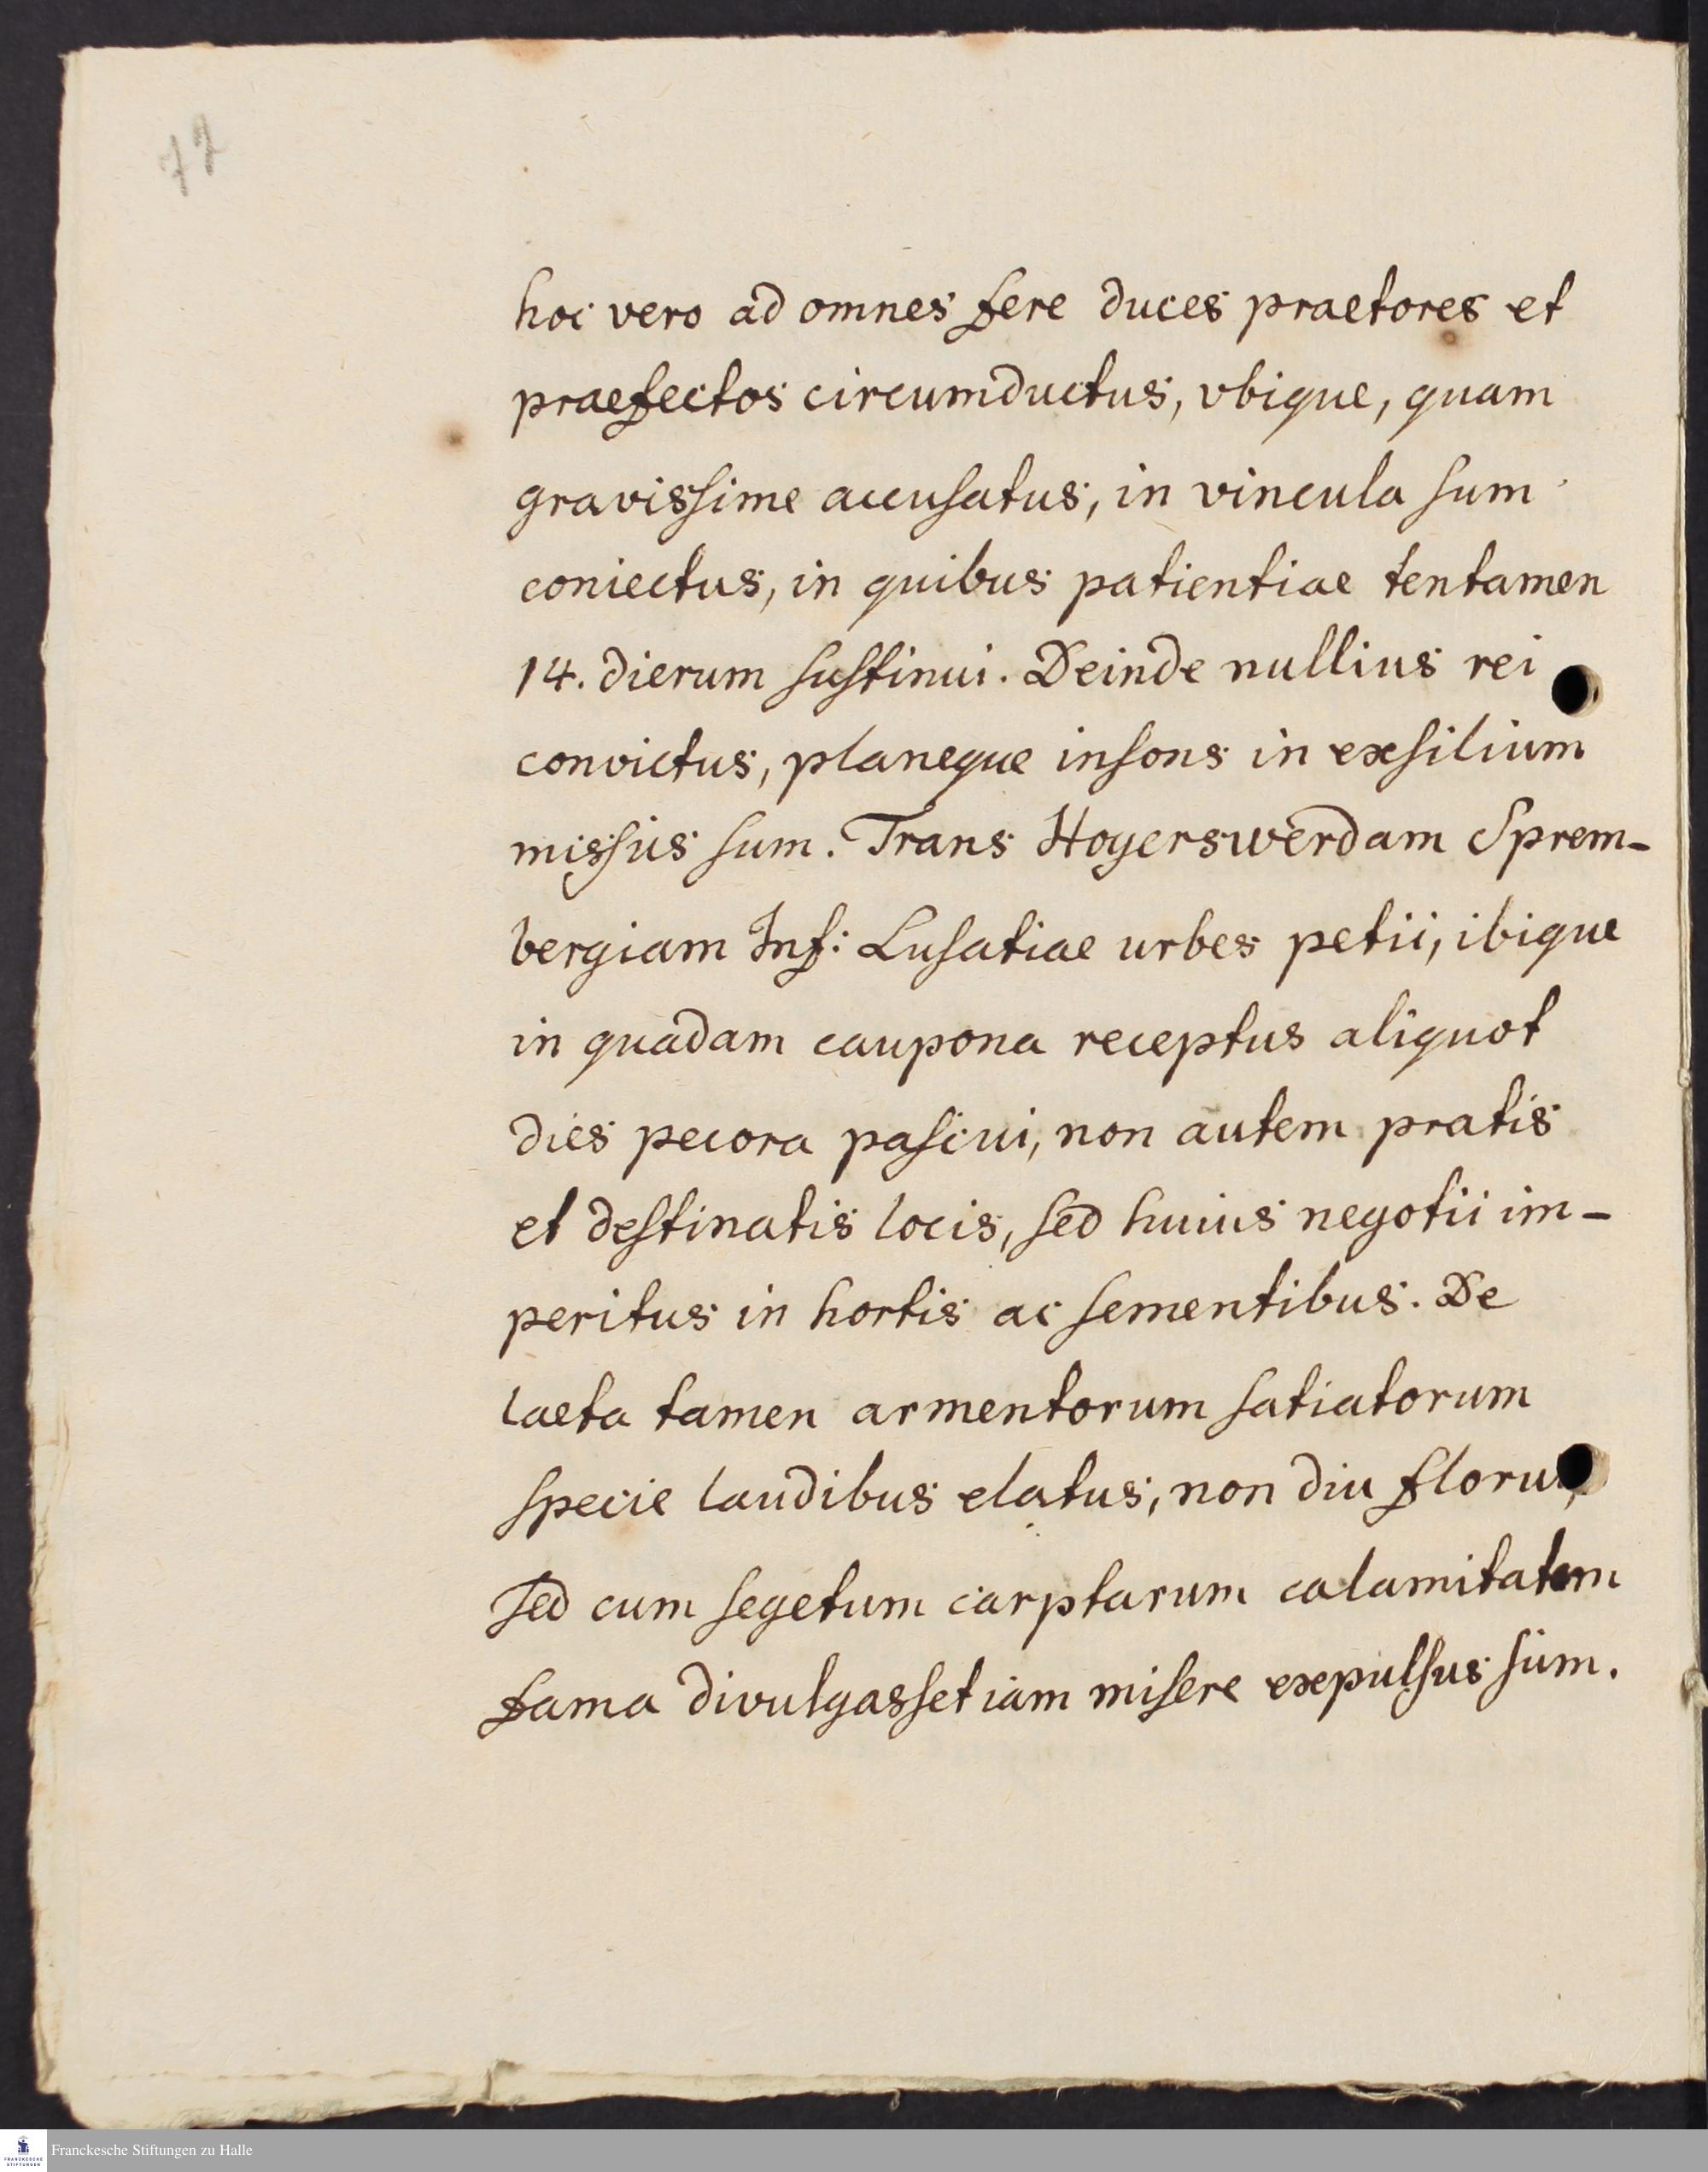 77
hoc vero ad omnes fere duces praetores et
praefectos circumductus, vbique, quam
gravissime accusatus, in vincula sum
coniectus, in quibus patientiae tentamen
14. dierum sustinui. Deinde nullius rei
convictus, planeque insons in exsilium
missus sum. Trans Hoyerswerdam Sprem-
bergiam Inf: Lusatiae urbes petii, ibique
in quadam caupona receptus aliquot
dies pecora pascui, non autem pratis
et destinatis locis, sed huius negotii im-
peritus in hortis ac sementibus. De
laeta tamen armentorum satiatorum
specie laudibus elatus, non diu florui,
sed cum segetum carptarum calamitatem
fama divulgasset iam misere expulsus sum.
Franckesche Stiftungen zu Halle
FRANCKESCHE
STIFTUNGEN